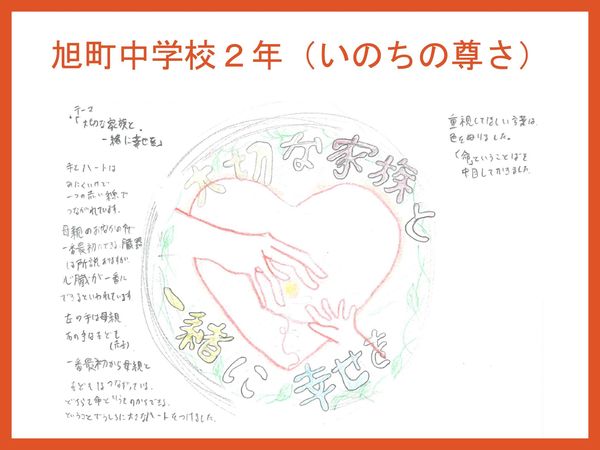 旭町中学校２年（いのちの尊さ）
テーマ
「大切な家族と
一緒に幸せを」
手とハートは
一つの赤い線で
つながれています。
母親のおなかの中で
一番最初にできる臓器
は所説ありますが
心臓が一番に
できるといわれています
左の手は母親
右の手は子ども
一番最初から母親と
子どもはつながっている。
ということでうしろに大きなハートをつけました。
大切な家族と
一緒に幸せを
重視してほしい言葉は
色をぬりました。
「命」ということばを
中目してかきました